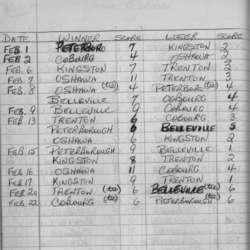 DATE WINNER SCORE LOSER SCORE
FEB. 1 PETERBORO 7 KINGSTON 2
FEB 2 COBOURG 4 OSHAWA 2
FEB. 6 KINGSTON 7 TRENTON 3
FEB. 7 OSHAWA 11 TRENTON 3
FEB. 8 OSHAWA (tie) 4 PETERBORO (tie) 4
BELLEVILLE 7 COBOURG 4
FEB. 9 BELLEVILLE 9 COBOURG 4
FEB 13 TRENTON 6 COBOURG 3
PETERBOROUGH 6 BELLEVILLE 5
OSHAWA 6 KINGSTON 2
FEB. 15 PETERBOROUGH 7 BELLEVILLE 1
KINGSTON 8 TRENTON 2
FEB 16 OSHAWA 11 COBOURG 4
FEB 17 KINGSTON 9 TRENTON 1
FEB 20 TRENTON (tie) 6 BELLEVILLE (tie) 6
FEB. 22 COBOURG (tie) 6 PETERBOROUGH 6